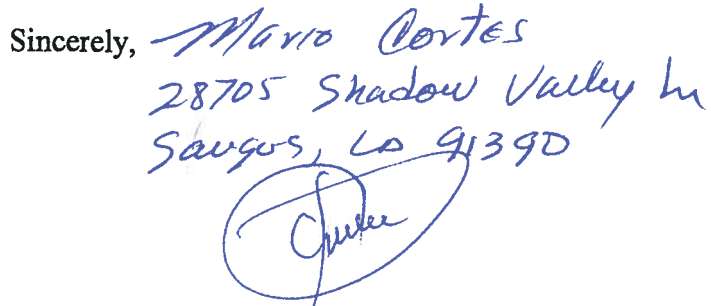 Sincerely, Mario Cortes
28705 Shadow Valley Ln
Saugus, Ca 91390